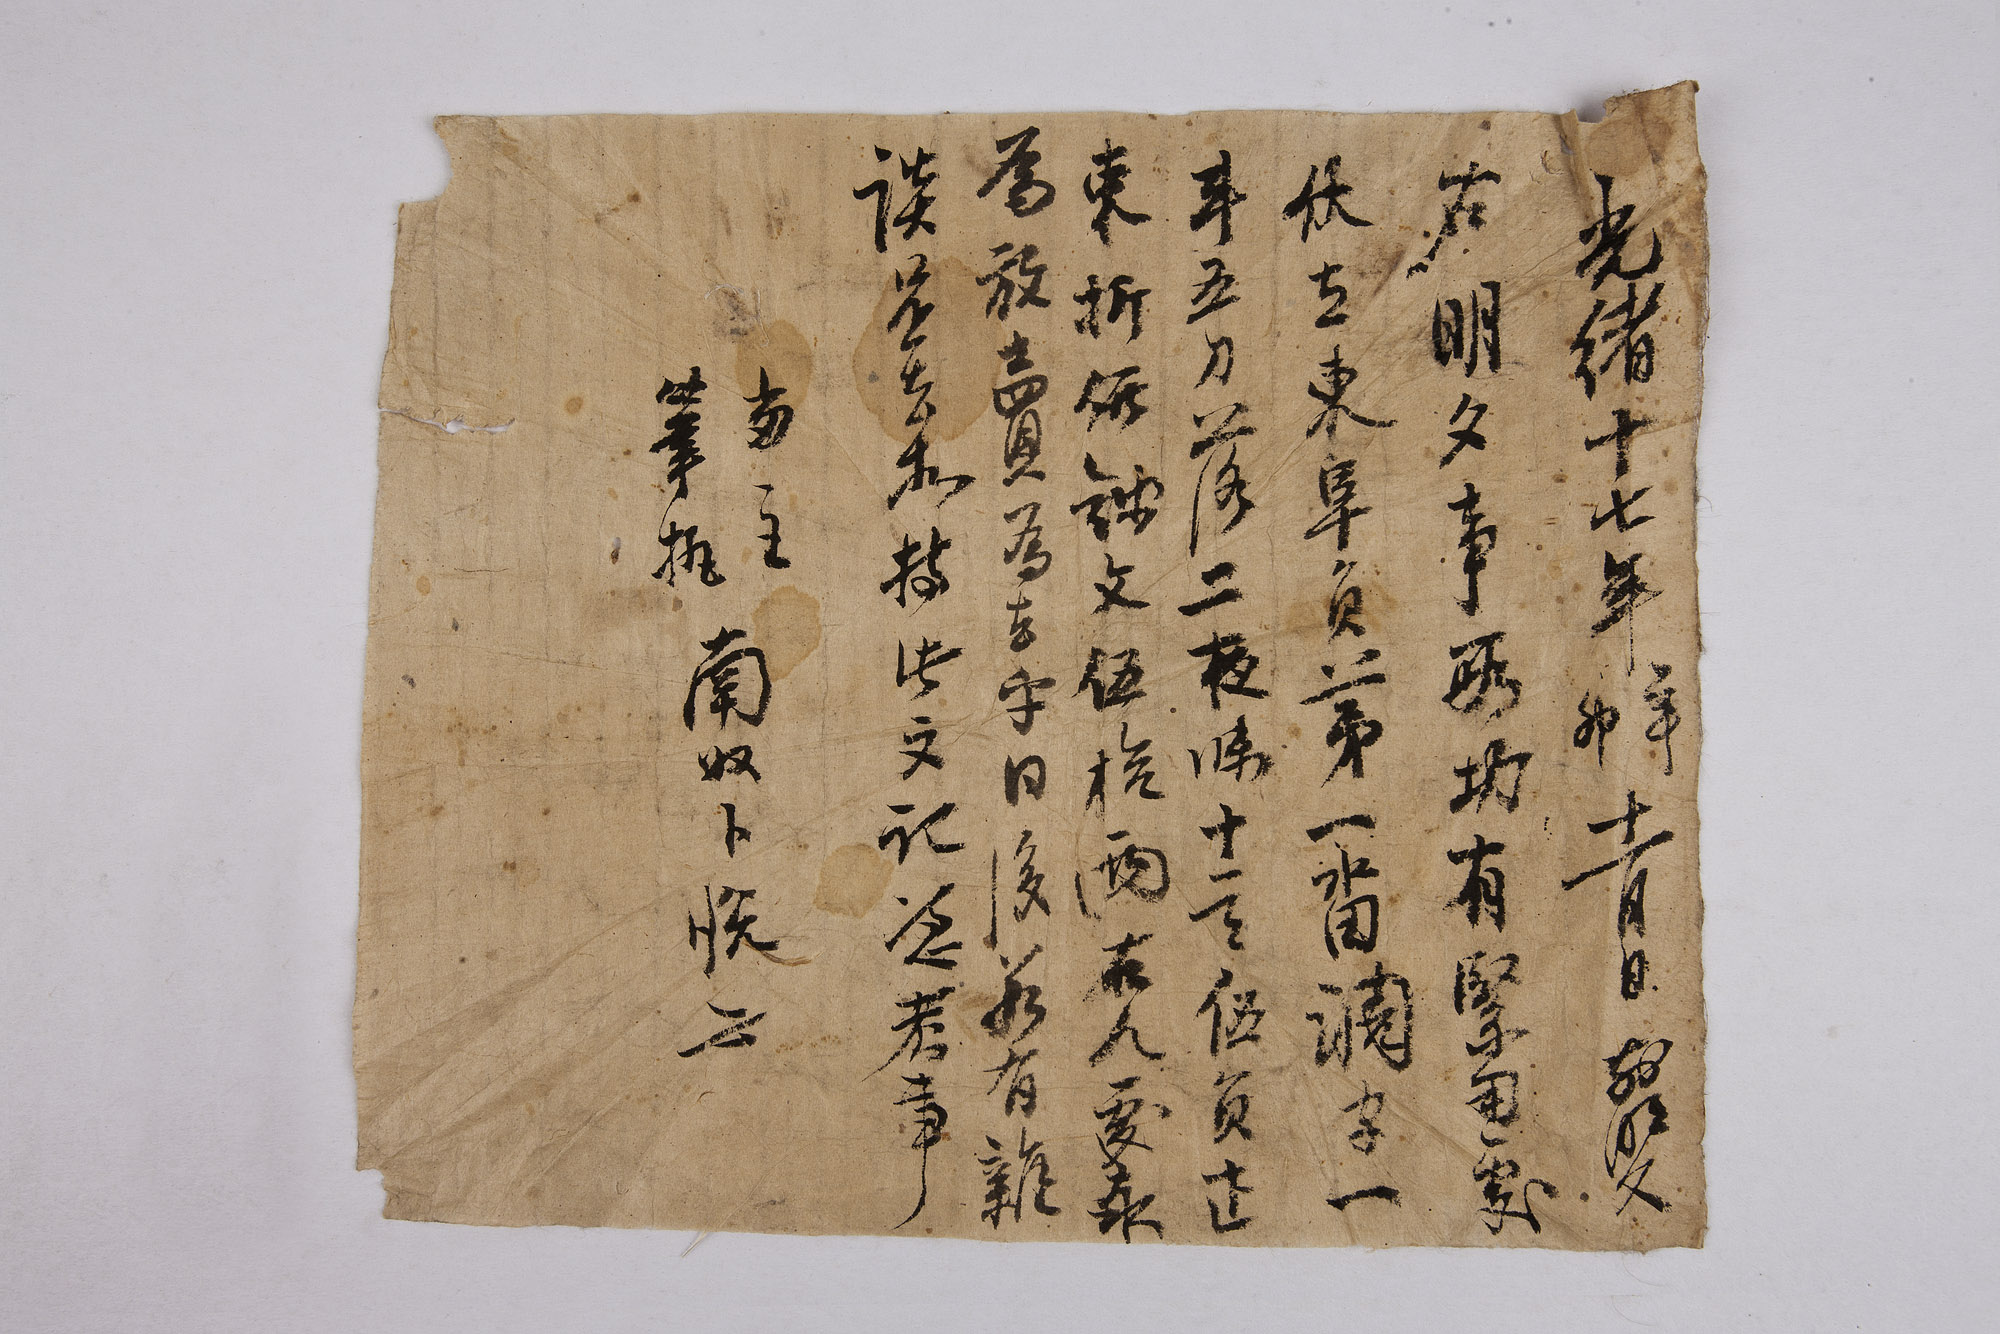 光緒十七年辛卯十一月日 前明文
右明文事段切有緊用處
伏在東阜員第一畓潤字一
斗五刀落二夜味十三負伍束
束折価錢文伍拾兩右人處永
爲放賣爲去乎日後若有雜
談是去等持此文記憑考事
畓主
筆執 南奴卜悅